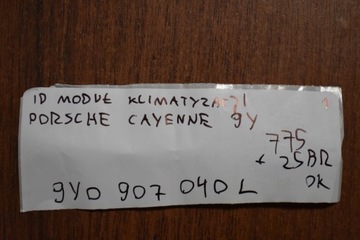 ID MODUŁ KLIMATYZACJI
PORSCHE CAYENNE 9Y
775
+ 25BR
OK
9Y0 907 040 L